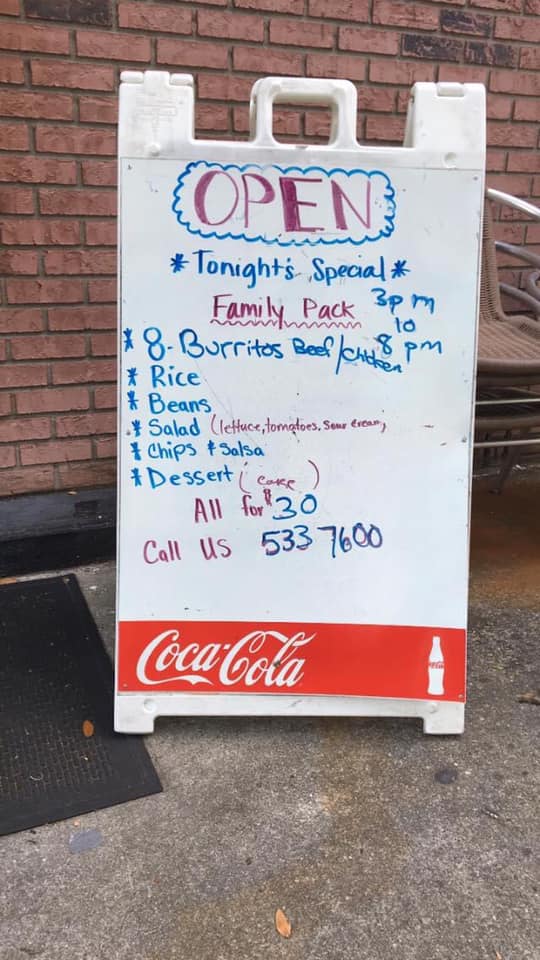 OPEN
*Tonight's Special*
Family Pack 3pm
to
* 8-Burritos Beef/Chicken 8 pm
* Rice
* Beans
* Salad (lettuce, tomatoes, sour cream,
* Chips & Salsa
* Dessert (cake)
All for $30
Call Us 533 7600
Coca-Cola